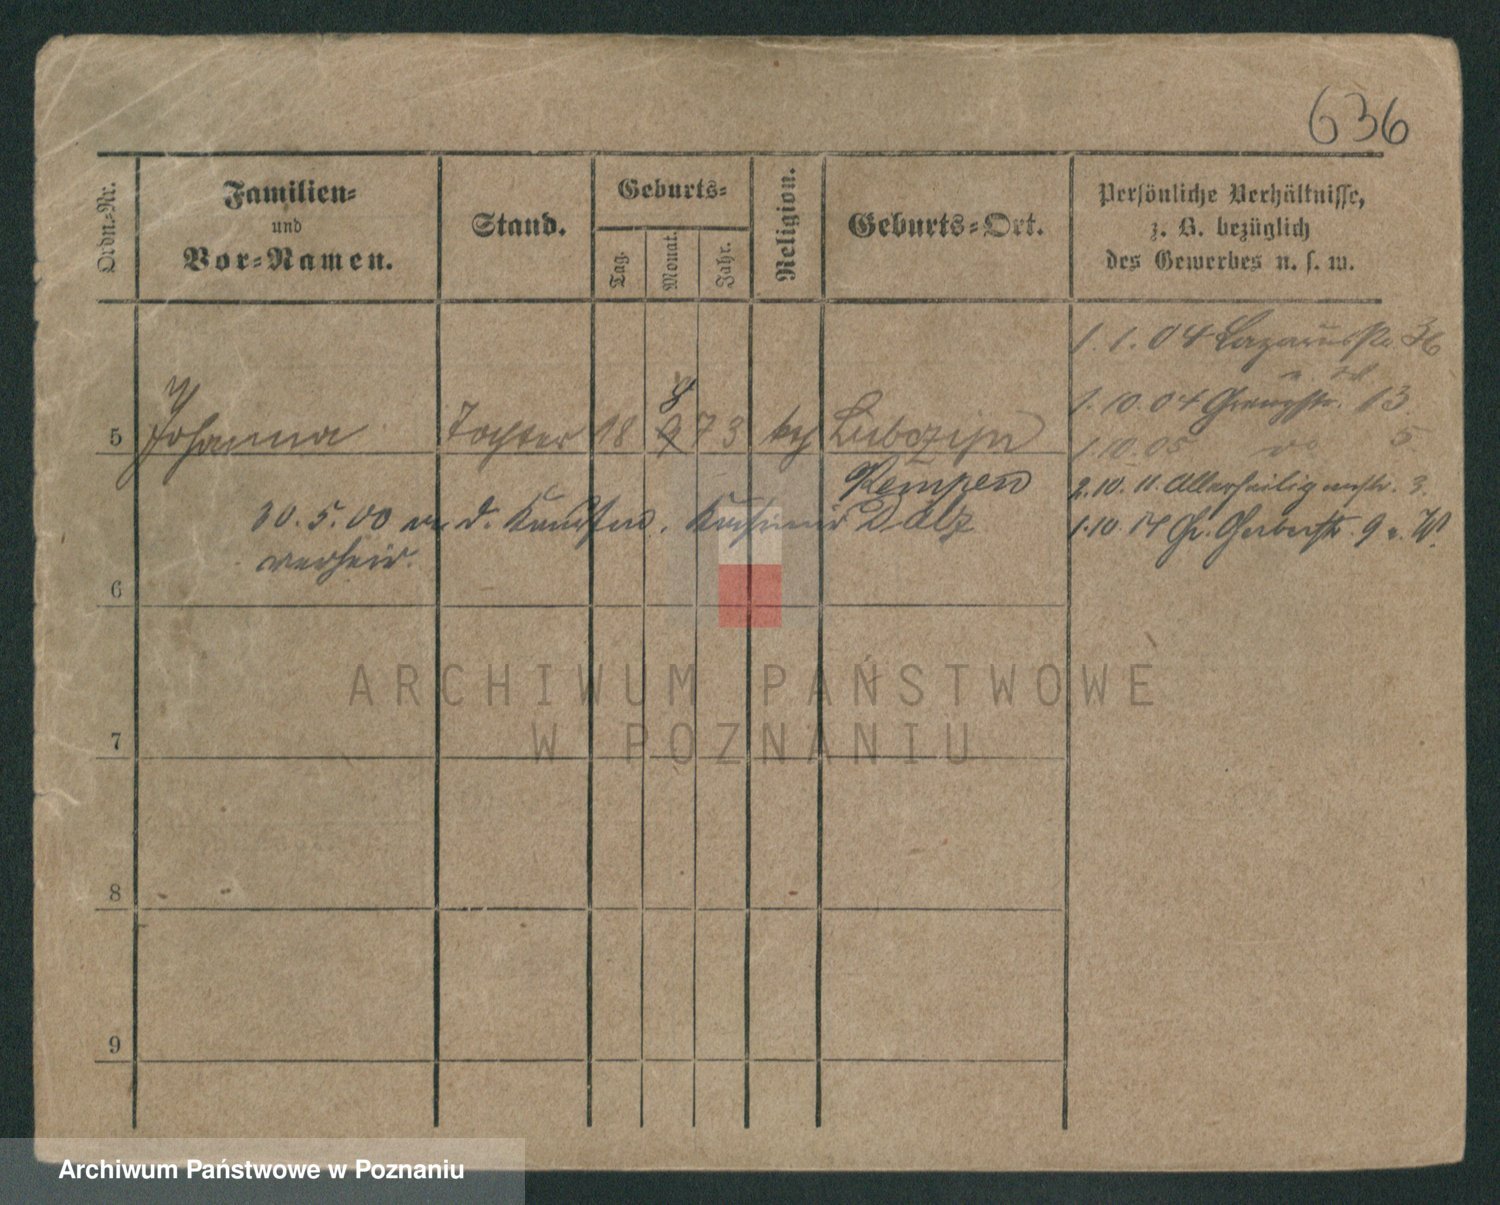 636
Ordn.-Nr.
Familien-
und
Vor-Namen.
Stand.
Geburts-
Tag.
Monat.
Jahr.
Religion.
Geburts-Ort.
Persönliche Verhältnisse,
z. B. bezüglich
des Gewerbes u. s. w.
1. 1. 04 Lazarusstr. 36
1. 10. 04 13
5 Johanna Tochter 18 8 73 kth
1. 10. 05 5
Kempen
2. 10. 11. Allerheiligenstr. 3.
30. 5. 00 an d. Kasimir Dalz
1. 10. 14 Gr. Gerberstr. 9
verheir.
6
7
8
9
ARCHIWUM PAŃSTWOWE
W POZNANIU
Archiwum Państwowe w Poznaniu